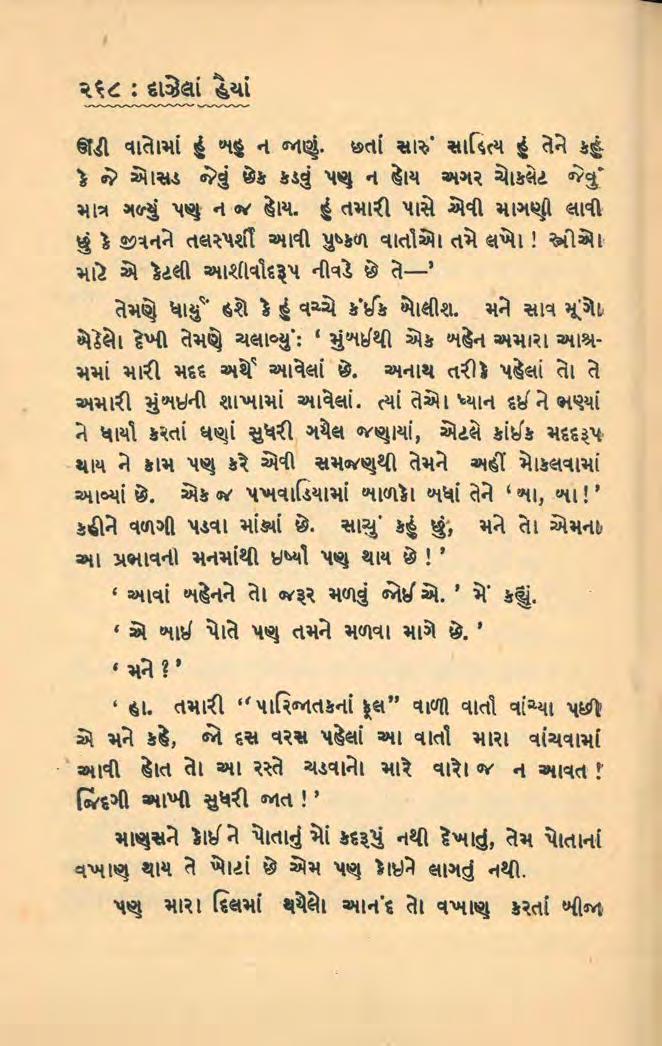 ૨૬૮ : દાઝેલાં હૈયાં
ઊંડી વાતોમાં હું બહુ ન જાણું. છતાં સારું સાહિત્ય હું તેને કહું
કે જે ઓસડ જેવું છેક કડવું પણ ન હોય અગર ચોકલેટ જેવું
માત્ર ગળ્યું પણ ન જ હોય. હું તમારી પાસે એવી માગણી લાવી
છું કે જીવનને તલસ્પર્શી આવી પુષ્કળ વાર્તાઓ તમે લખો ! સ્ત્રીઓ
માટે એ કેટલી આશીર્વાદરૂપ નીવડે છે તે—’
તેમણે ધાર્યું હશે કે હું વચ્ચે કંઈક બોલીશ. મને સાવ મૂંગો
બેઠેલો દેખી તેમણે ચલાવ્યું : ‘ મુંબઈથી એક બહેન અમારા આશ્ર-
મમાં મારી મદદ અર્થે આવેલાં છે. અનાથ તરીકે પહેલાં તો તે
અમારી મુંબઇની શાખામાં આવેલાં. ત્યાં તેઓ ધ્યાન દઈ ને ભણ્યાં
ને ધાર્યા કરતાં ઘણાં સુધરી ગયેલ જણાયાં, એટલે કાંઈક મદદરૂપ
થાય ને કામ પણ કરે એવી સમજણથી તેમને અહીં મોકલવામાં
આવ્યાં છે. એક જ પખવાડિયામાં બાળકો બધાં તેને ‘ બા, બા ! ’
કહીને વળગી પડવા માંડ્યાં છે. સાચું કહું છું, મને તો એમના
આ પ્રભાવની મનમાંથી ઇર્ષ્યા પણ થાય છે ! ’
‘ આવાં બહેનને તો જરૂર મળવું જોઈ એ. ’ મેં કહ્યું.
‘ એ બાઈ પોતે પણ તમને મળવા માગે છે. ’
‘ મને ? ’
‘ હા. તમારી “ પારિજાતકનાં ફૂલ ” વાળી વાર્તા વાંચ્યા પછી
એ મને કહે, જો દસ વરસ પહેલાં આ વાર્તા મારા વાંચવામાં
આવી હોત તો આ રસ્તે ચડવાનો મારે વારો જ ન આવત !
જિંદગી આખી સુધરી જાત ! ’
માણસને કોઈ ને પોતાનું મોં કદરૂપું નથી દેખાતું, તેમ પોતાનાં
વખાણ થાય તે ખોટાં છે એમ પણ કોઇને લાગતું નથી.
પણ મારા દિલમાં થયેલો આનંદ તો વખાણ કરતાં બીજા